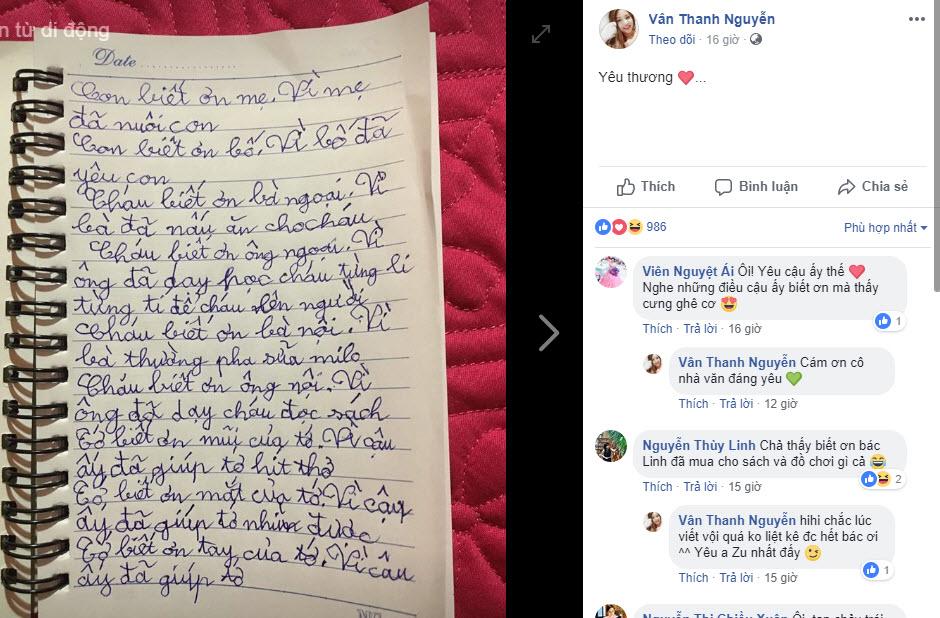 n từ di động
Date
Con biết ơn mẹ. Vì mẹ
đã nuôi con
Con biết ơn bố. Vì bố đã
yêu con
Cháu biết ơn bà ngoại. Vì
bà đã nấu ăn cho cháu
Cháu biết ơn ông ngoại. Vì
ông đã dạy học cháu từng li
từng tí để cháu nên người
Cháu biết ơn bà nội. Vì
bà thường pha sữa milo
Cháu biết ơn ông nội. Vì
ông đã dạy cháu đọc sách
Tớ biết ơn mũi của tớ. Vì cậu
ấy đã giúp tớ hít thở
Tớ biết ơn mắt của tớ. Vì cậu
ấy đã giúp tớ nhìn được
Tớ biết ơn tay của tớ. Vì cậu
ấy đã giúp tớ
Vân Thanh Nguyễn
Theo dõi · 16 giờ ·
Yêu thương ❤️...
Thích Bình luận Chia sẻ
986 Phù hợp nhất
Viên Nguyệt Ái Ôi! Yêu cậu ấy thế ❤️
Nghe những điều cậu ấy biết ơn mà thấy
cưng ghê cơ 😍
1
Thích · Trả lời · 16 giờ
Vân Thanh Nguyễn Cám ơn cô
nhà văn đáng yêu 💚
Thích · Trả lời · 12 giờ
Nguyễn Thùy Linh Chả thấy biết ơn bác
Linh đã mua cho sách và đồ chơi gì cả 😂
2
Thích · Trả lời · 15 giờ
Vân Thanh Nguyễn hihi chắc lúc
viết vội quá ko liệt kê đc hết bác ơi
^^ Yêu a Zu nhất đấy 😉
1
Thích · Trả lời · 15 giờ